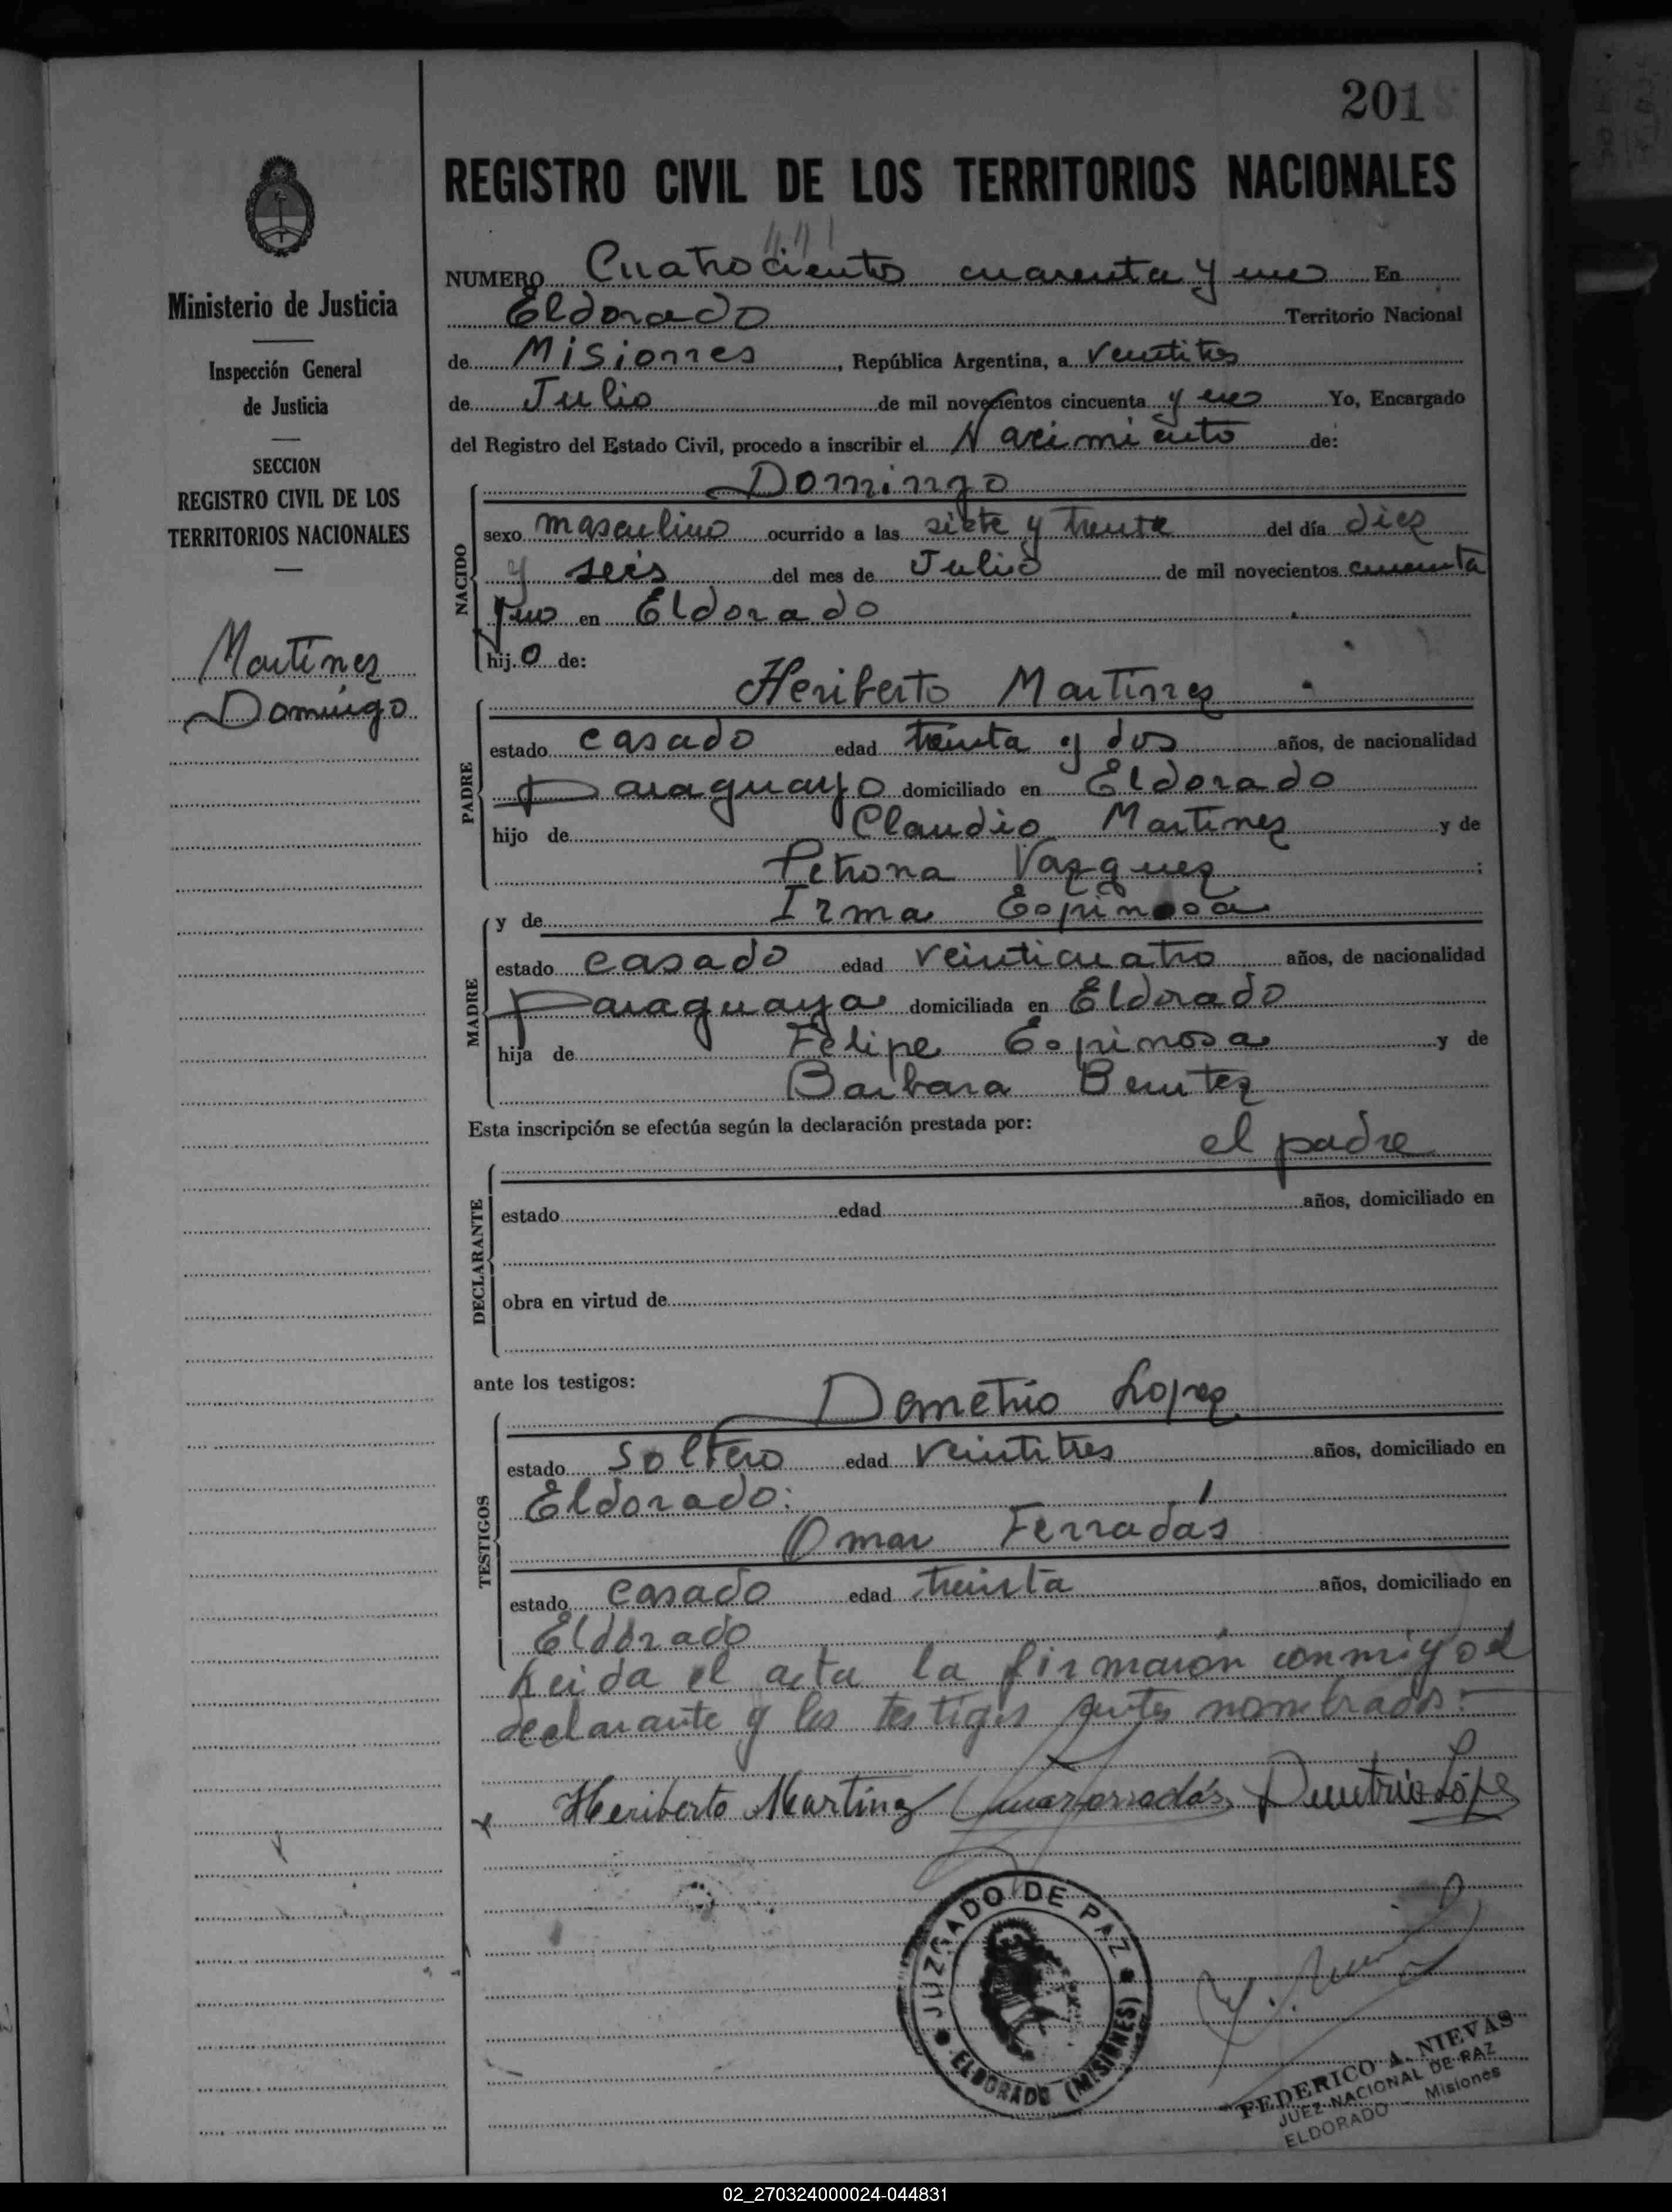 201
REGISTRO CIVIL DE LOS TERRITORIOS NACIONALES
Ministerio de Justicia
Inspección General
de Justicia
SECCION
REGISTRO CIVIL DE LOS
TERRITORIOS NACIONALES
Martinez
Domingo
441
NUMERO Cuatrocientos cuarenta y uno En
Eldorado Territorio Nacional
de Misiones, República Argentina, a veintitres
de Julio de mil novecientos cincuenta y uno Yo, Encargado
del Registro del Estado Civil, procedo a inscribir el Nacimiento de:
NACIDO
Domingo
sexo masculino ocurrido a las siete y treinta del día diez
y seis del mes de Julio de mil novecientos cincuenta
y uno en Eldorado
hijo de:
PADRE
Heriberto Martinez
estado casado edad treinta y dos años, de nacionalidad
Paraguayo domiciliado en Eldorado
hijo de Claudio Martinez y de
Petrona Vazquez;
MADRE
y de Irma Espinosa
estado casado edad veinticuatro años, de nacionalidad
Paraguaya domiciliada en Eldorado
hija de Felipe Espinosa y de
Barbara Benitez
Esta inscripción se efectúa según la declaración prestada por:
el padre
DECLARANTE
estado edad años, domiciliado en
obra en virtud de
ante los testigos:
TESTIGOS
Demetrio Lopez
estado soltero edad veintitres años, domiciliado en
Eldorado:
Omar Ferradás
estado casado edad treinta años, domiciliado en
Eldorado
Leida el acta la firmaron conmigo el
declarante y los testigos antes nombrados:
Heriberto Martinez Omar Ferradás Demetrio López
JUZGADO DE PAZ
ELDORADO (MISIONES)
FEDERICO A. NIEVAS
JUEZ NACIONAL DE PAZ
ELDORADO - Misiones
02_270324000024-044831